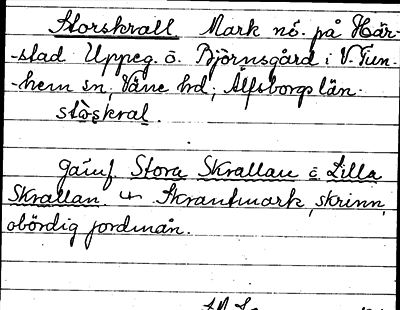 Storskrall. Mark nö. på Här-
-stad Uppeg. o. Björnsgård i V. Tun-
-hem sn, Väne hd, Älfsborgs län.
stòskral.
jämf. Stora Skrallan o Lilla
Skrallan. Skrantmark, skrinn,
obördig jordmån.